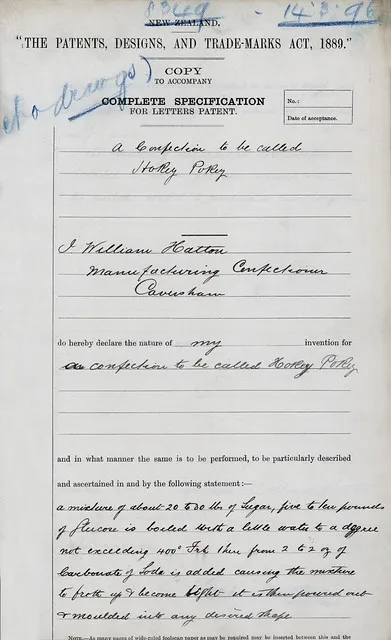 8349 - 14.3.96
NEW ZEALAND.
"THE PATENTS, DESIGNS, AND TRADE-MARKS ACT, 1889."
(no drawgs)
COPY
TO ACCOMPANY
COMPLETE SPECIFICATION
FOR LETTERS PATENT.
No.:
Date of acceptance.
A Confection to be called
Hokey Pokey
I William Hatton
Manufacturing Confectioner
Caversham
do hereby declare the nature of my invention for
a confection to be called Hokey Pokey
and in what manner the same is to be performed, to be particularly described
and ascertained in and by the following statement :—
a mixture of about 20 to 30 lbs of Sugar, five to ten pounds
of glucose is boiled with a little water to a degree
not exceeding 40° then from 2 to 2 oz of
Carbonate of Soda is added causing the mixture
to froth up & become light it is then poured out
& moulded into any desired shape
NOTE.—As many pages of wide-ruled foolscap paper as may be required may be inserted between this and the